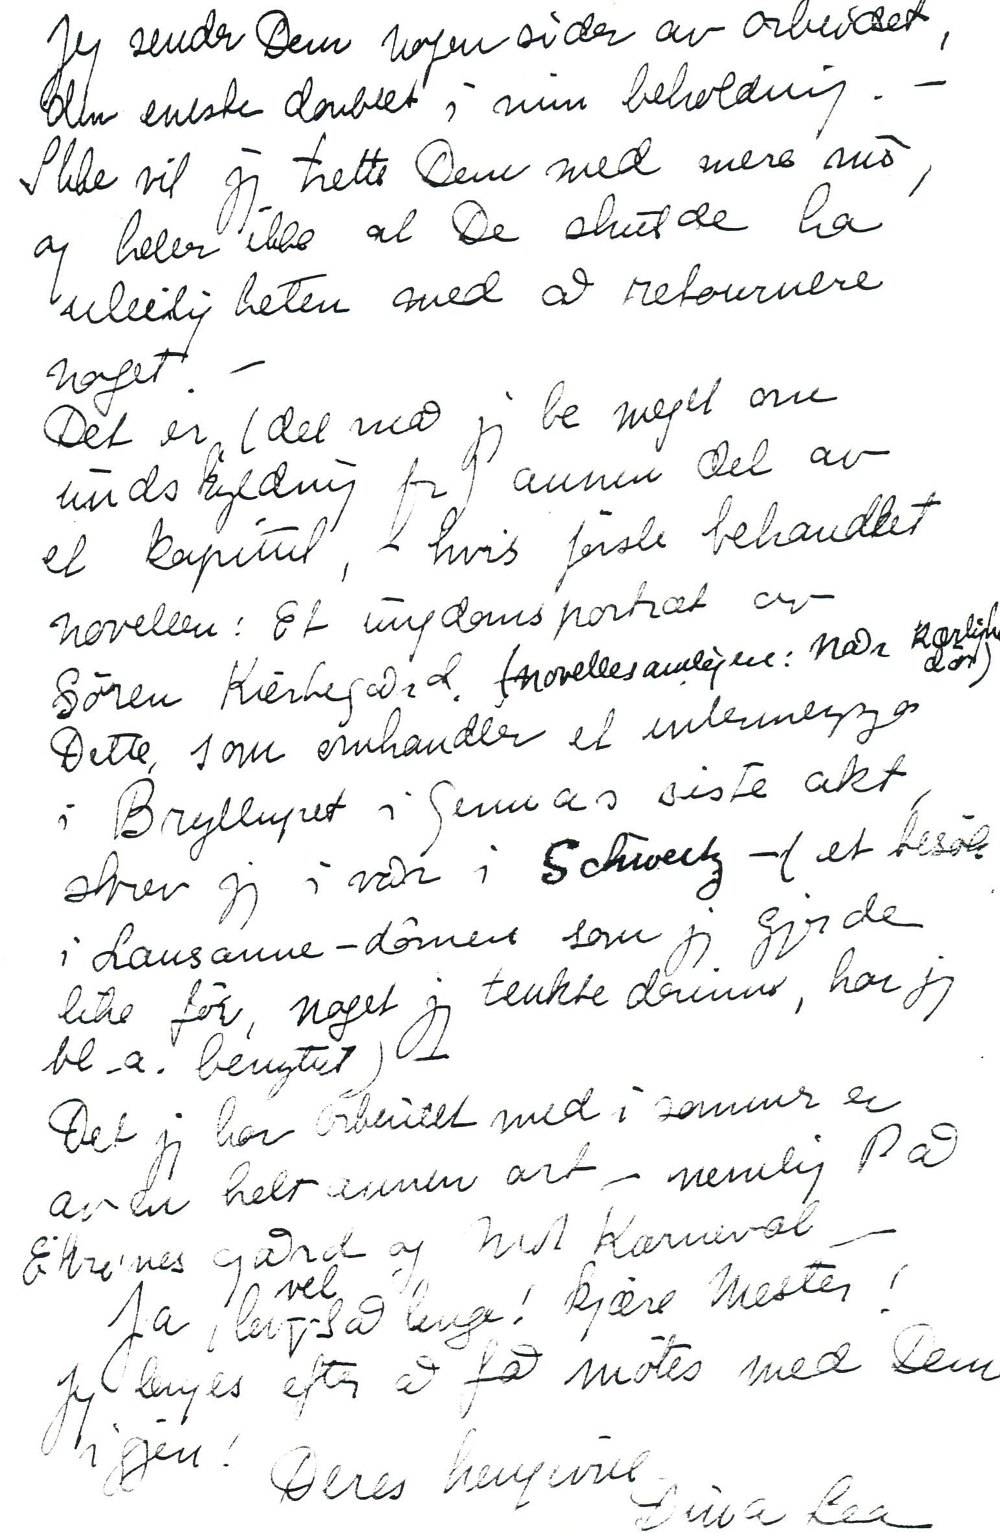 Jeg sender Dem nogen sider av arbeidet,
den eneste doublet i min beholdning. –
Ikke vil jeg trette Dem med mere nu,
og heler ikke at De skulde ha
uleiligheten med å retournere
noget. –
Det er, (det må jeg be meget om
undskyldning for) annen del av
et kapittel, – hvis første behandlet
novellen: Et ungdomsportræt av
Sören Kierkegård. (Novellesamlingen: Når Kærlighe
dør)
Dette, som omhandler et intermezzo
i Bryllupet i Genuas siste akt,
skrev jeg i vår i Schweitz –( et besök
i Lausanne–dômen som jeg gjorde
like før, noget jeg tenkte derinne, har jeg
bl.a. benyttet) –
Det jeg har arbeidet med i sommer er
av en helt annen art – nemlig På
gård og Mot Karneval –
Ja, lev vel så lenge! kjære Mester!
Jeg lenges efter å få møtes med Dem
igjen!
Deres hengivne
Lea